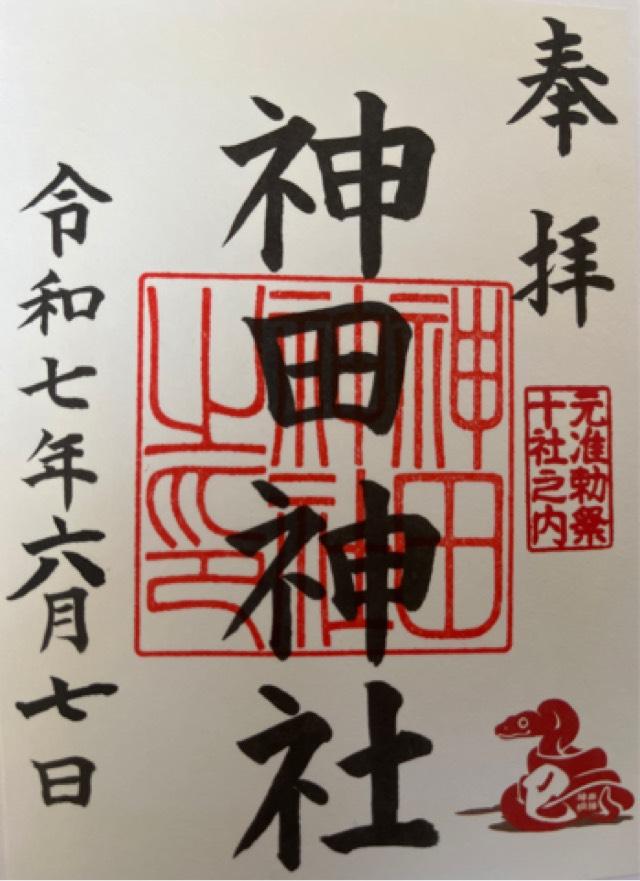 奉拝
元准勅祭
十社之内
神田神社
神田神社之印
令和七年六月七日
巳